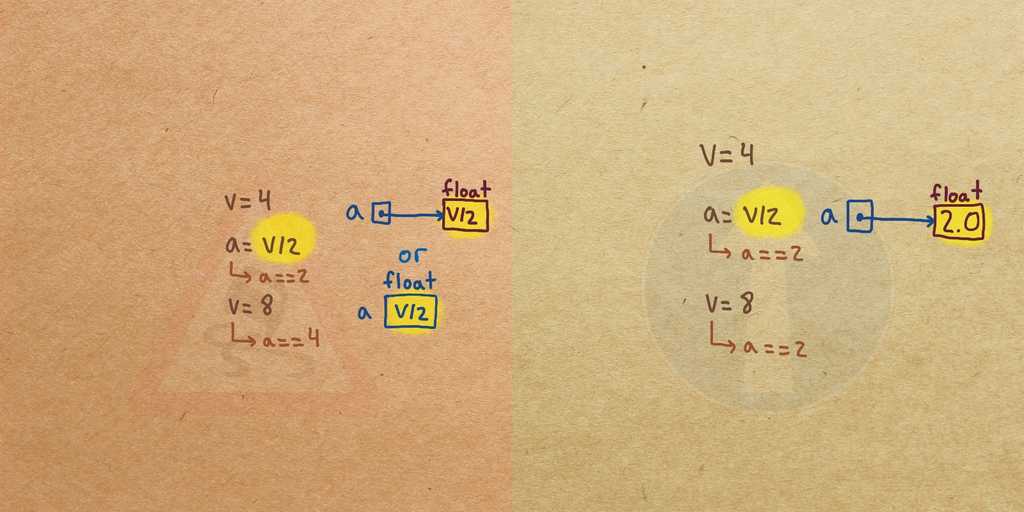 v=4
a= v/2
a==2
v=8
a==4
float
a v/2
or
float
a v/2
v=4
a= v/2
a==2
v=8
a==2
float
a 2.0